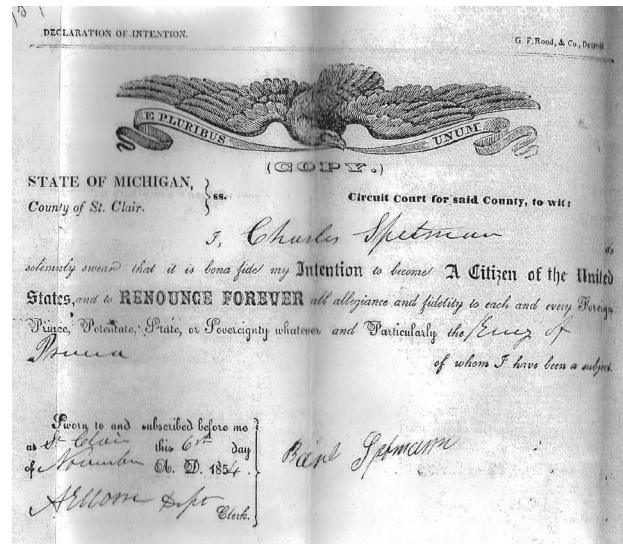 DECLARATION OF INTENTION.
G. F. Rood, & Co., Detroit
E PLURIBUS UNUM.
(COPY.)
STATE OF MICHIGAN,
County of St. Clair.
ss.
Circuit Court for said County, to wit:
I, Charles Spetman do
solemnly swear that it is bona fide my Intention to become A Citizen of the United
States, and to RENOUNCE FOREVER all allegiance and fidelity to each and every Foreign
Prince, Potentate, State, or Sovereignty whatever and Particularly the King of
of whom I have been a subject.
Sworn to and subscribed before me
at St Clair this 6 day
of November A. D. 1854.
Clerk.